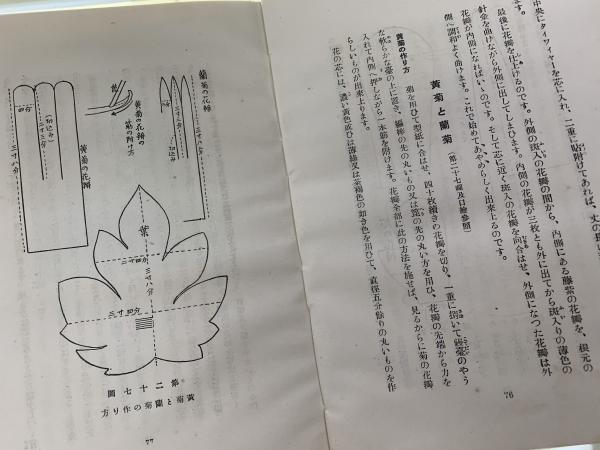 中央にタイワイヤーを芯に入れ、二重に貼附けてあれば、丈の
最後に花瓣を仕上げるのです。外側の斑入の花瓣の間から、内側にある藤紫の花瓣を、根元の
針金を曲げながら外側に出してしまひます。内側の花瓣が三枚とも外に出てから斑入りの薄色の
花瓣が内側になればいゝのです。そして芯に近く斑入の花瓣を向合はせ、外側になつた花瓣は外
側へ調和よく曲げます。これで始めてあやめらしく出來上るのです。
黄菊と蘭菊 (第二十七圖及日繪參照)
黄菊の作り方
菊を用ひて型紙に合はせ、四十枚續きの花瓣を切り、一重に擴いて
な軟らかな臺の上に置き、編棒の先の丸いもの又は篦の先の丸い方を用ひ、花瓣の先端から力を
入れて内側へ押しながら一本筋を附けます。花瓣全部に此の方法を施せば、見るからに菊の花瓣
らしいものが出來上ります。
花の芯には、濃い黄色或ひは薄綠又は茶褐色の如き色を用ひて、直徑五分餘りの丸いものを作
76
蘭菊の花瓣
三寸八分
三寸六分
切込み
黄菊の花瓣の
筋の附け方
黄菊の花瓣
四分
(切込み)
三寸二分
三寸八分
葉
二寸四分
三寸八分
三寸四分
第二十七圖
黄菊と蘭菊の作り方
77